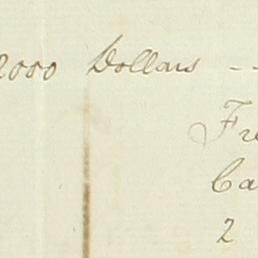 2000 Dollars --
Fre
Ca
2